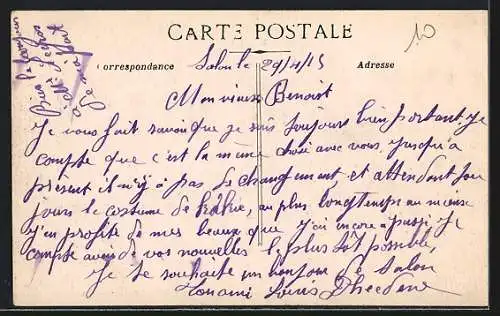 CARTE POSTALE
Correspondance
Adresse
10
Salon le 29/4/15
Mon vieux Benoist
Je vous fait savoir que je suis toujours bien portant, je
compte que c'est la même chose avec vous, jusqu'a
présent il n'y à pas de changement et attendent tou
jours le costume de au plus longtemps au mieux
j'en profite de mes beaux que j'ai encore à passé Je
compte avoir de vos nouvelles le plus tôt possible,
Je te souhaite un bonjour de Salon
Ton ami Louis
Bien le bonjour
a Mr